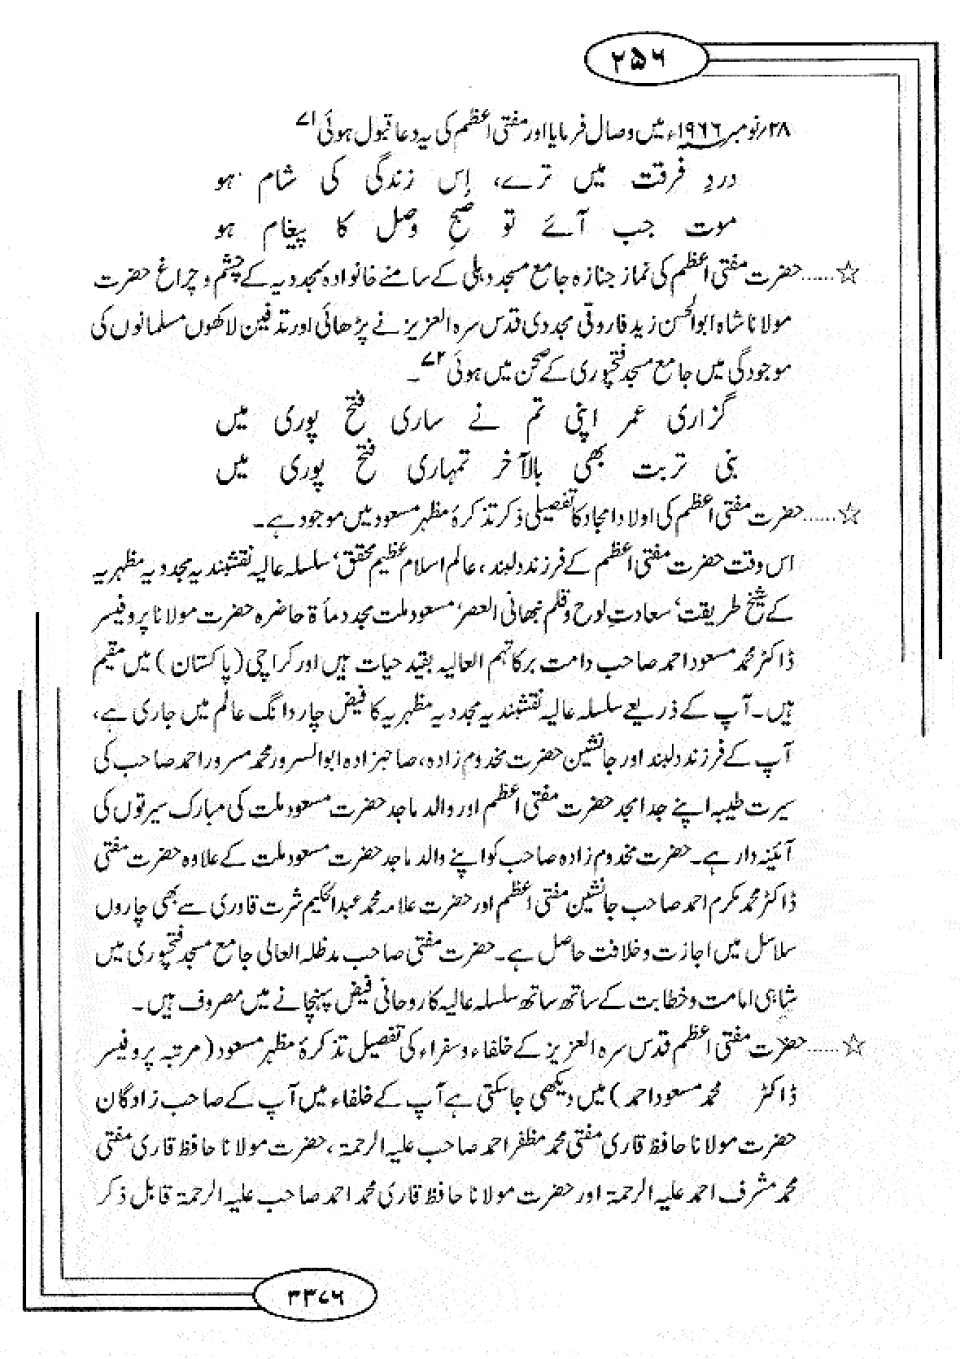 ۲۵۶
۲۸/نومبر ۱۹۶۶ء میں وصال فرمایا اور مفتی اعظم کی یہ دعا قبول ہوئی ۷۱
دردِ فرقت میں ترے، اِس زندگی کی شام ہو
موت جب آئے تو صبحِ وصل کا پیغام ہو
☆......حضرت مفتی اعظم کی نماز جنازہ جامع مسجد دہلی کے سامنے خانوادہ مجددیہ کے چشم و چراغ حضرت
مولانا شاہ ابوالحسن زید فاروقی مجددی قدس سرہ العزیز نے پڑھائی اور تدفین لاکھوں مسلمانوں کی
موجودگی میں جامع مسجد فتحپوری کے صحن میں ہوئی ۷۲۔
گزاری عمر اپنی تم نے ساری فتح پوری میں
بنی تربت بھی بالآخر تمہاری فتح پوری میں
☆......حضرت مفتی اعظم کی اولاد امجاد کا تفصیلی ذکر تذکرۂ مظہر مسعود میں موجود ہے۔
اس وقت حضرت مفتی اعظم کے فرزند دلبند، عالم اسلام عظیم محقق، سلسلہ عالیہ نقشبندیہ مجددیہ مظہریہ
کے شیخ طریقت، سعادتِ لوح و قلم نبھانی العصر، مسعود ملت مجدد مأة حاضرہ حضرت مولانا پروفیسر
ڈاکٹر محمد مسعود احمد صاحب دامت برکاتہم العالیہ بقید حیات ہیں اور کراچی (پاکستان) میں مقیم
ہیں۔ آپ کے ذریعے سلسلہ عالیہ نقشبندیہ مجددیہ مظہریہ کا فیض چار دانگ عالم میں جاری ہے،
آپ کے فرزند دلبند اور جانشین حضرت مخدوم زادہ، صاحبزادہ ابوالسرور محمد مسرور احمد صاحب کی
سیرت طیبہ اپنے جد امجد حضرت مفتی اعظم اور والد ماجد حضرت مسعود ملت کی مبارک سیرتوں کی
آئینہ دار ہے۔ حضرت مخدوم زادہ صاحب کو اپنے والد ماجد حضرت مسعود ملت کے علاوہ حضرت مفتی
ڈاکٹر محمد مکرم احمد صاحب جانشین مفتی اعظم اور حضرت علامہ محمد عبدالحکیم شرف قادری سے بھی چاروں
سلاسل میں اجازت و خلافت حاصل ہے۔ حضرت مفتی صاحب مدظلہ العالی جامع مسجد فتحپوری میں
شاہی امامت و خطابت کے ساتھ ساتھ سلسلہ عالیہ کا روحانی فیض پہنچانے میں مصروف ہیں۔
☆......حضرت مفتی اعظم قدس سرہ العزیز کے خلفاء و سفراء کی تفصیل تذکرۂ مظہر مسعود (مرتبہ پروفیسر
ڈاکٹر محمد مسعود احمد) میں دیکھی جاسکتی ہے آپ کے خلفاء میں آپ کے صاحب زادگان
حضرت مولانا حافظ قاری مفتی محمد مظفر احمد صاحب علیہ الرحمۃ، حضرت مولانا حافظ قاری مفتی
محمد مشرف احمد علیہ الرحمۃ اور حضرت مولانا حافظ قاری محمد احمد صاحب علیہ الرحمۃ قابل ذکر
۳۳۷۶